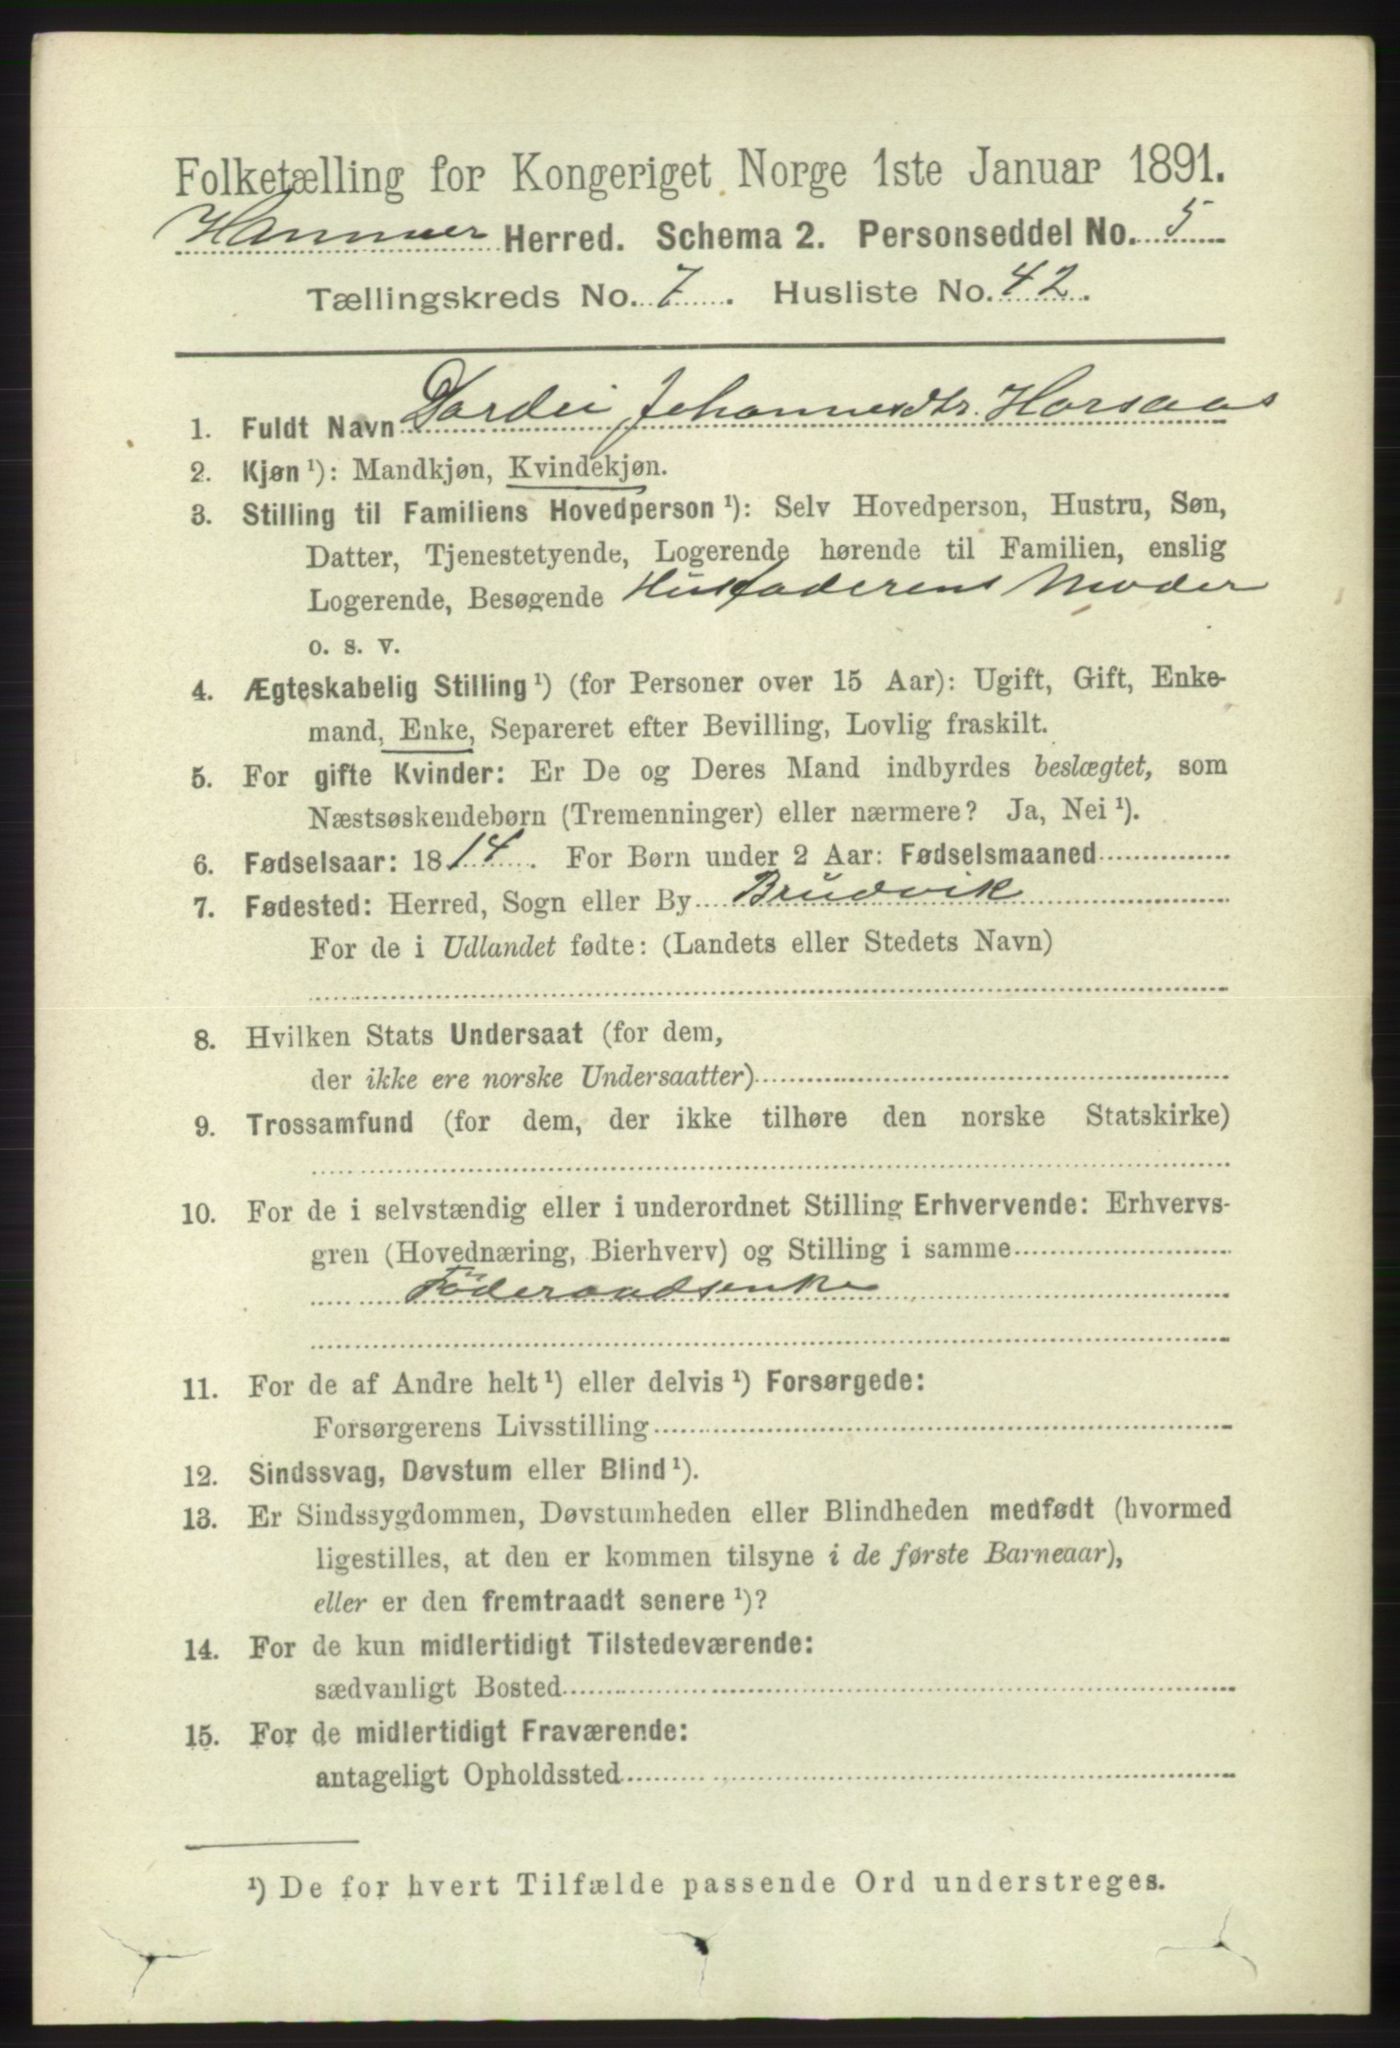 Folketælling for Kongeriget Norge 1ste Januar 1891.
Hammer Herred. Schema 2. Personseddel No. 5
Tællingskreds No. 7. Husliste No. 42.
1. Fuldt Navn Dordei Johannesdtr. Horsaas
2. Kjøn ¹): Mandkjøn, Kvindekjøn.
3. Stilling til Familiens Hovedperson ¹): Selv Hovedperson, Hustru, Søn,
Datter, Tjenestetyende, Logerende hørende til Familien, enslig
Logerende, Besøgende Husfaderens Moder
o. s. v.
4. Ægteskabelig Stilling ¹) (for Personer over 15 Aar): Ugift, Gift, Enke-
mand, Enke, Separeret efter Bevilling, Lovlig fraskilt.
5. For gifte Kvinder: Er De og Deres Mand indbyrdes beslægtet, som
Næstsøskendebørn (Tremenninger) eller nærmere? Ja, Nei ¹).
6. Fødselsaar: 1814. For Børn under 2 Aar: Fødselsmaaned
7. Fødested: Herred, Sogn eller By Brudvik
For de i Udlandet fødte: (Landets eller Stedets Navn)
8. Hvilken Stats Undersaat (for dem,
der ikke ere norske Undersaatter)
9. Trossamfund (for dem, der ikke tilhøre den norske Statskirke)
10. For de i selvstændig eller i underordnet Stilling Erhvervende: Erhvervs-
gren (Hovednæring, Bierhverv) og Stilling i samme
Föderaadsenke
11. For de af Andre helt ¹) eller delvis ¹) Forsørgede:
Forsørgerens Livsstilling
12. Sindssvag, Døvstum eller Blind ¹).
13. Er Sindssygdommen, Døvstumheden eller Blindheden medfødt (hvormed
ligestilles, at den er kommen tilsyne i de første Barneaar),
eller er den fremtraadt senere ¹)?
14. For de kun midlertidigt Tilstedeværende:
sædvanligt Bosted
15. For de midlertidigt Fraværende:
antageligt Opholdssted
¹) De for hvert Tilfælde passende Ord understreges.